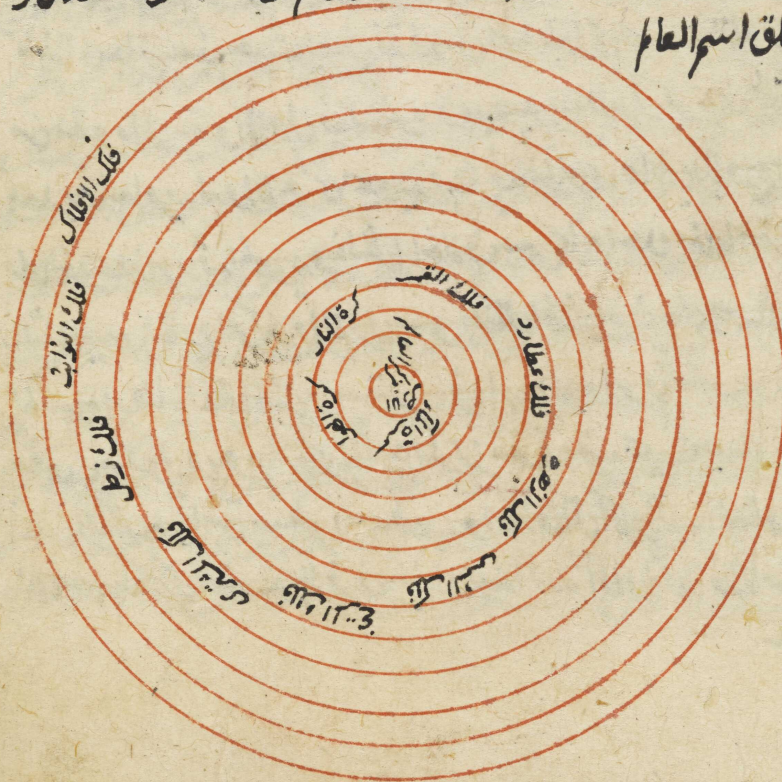 اسم العالم
فلك الافلاك
فلك الثوابت
فلك زحل
فلك المشترى
فلك المريخ
فلك الشمس
فلك الزهره
فلك عطارد
فلك القمر
كرة النار
كرة الهوا
كرة الماء
العالم